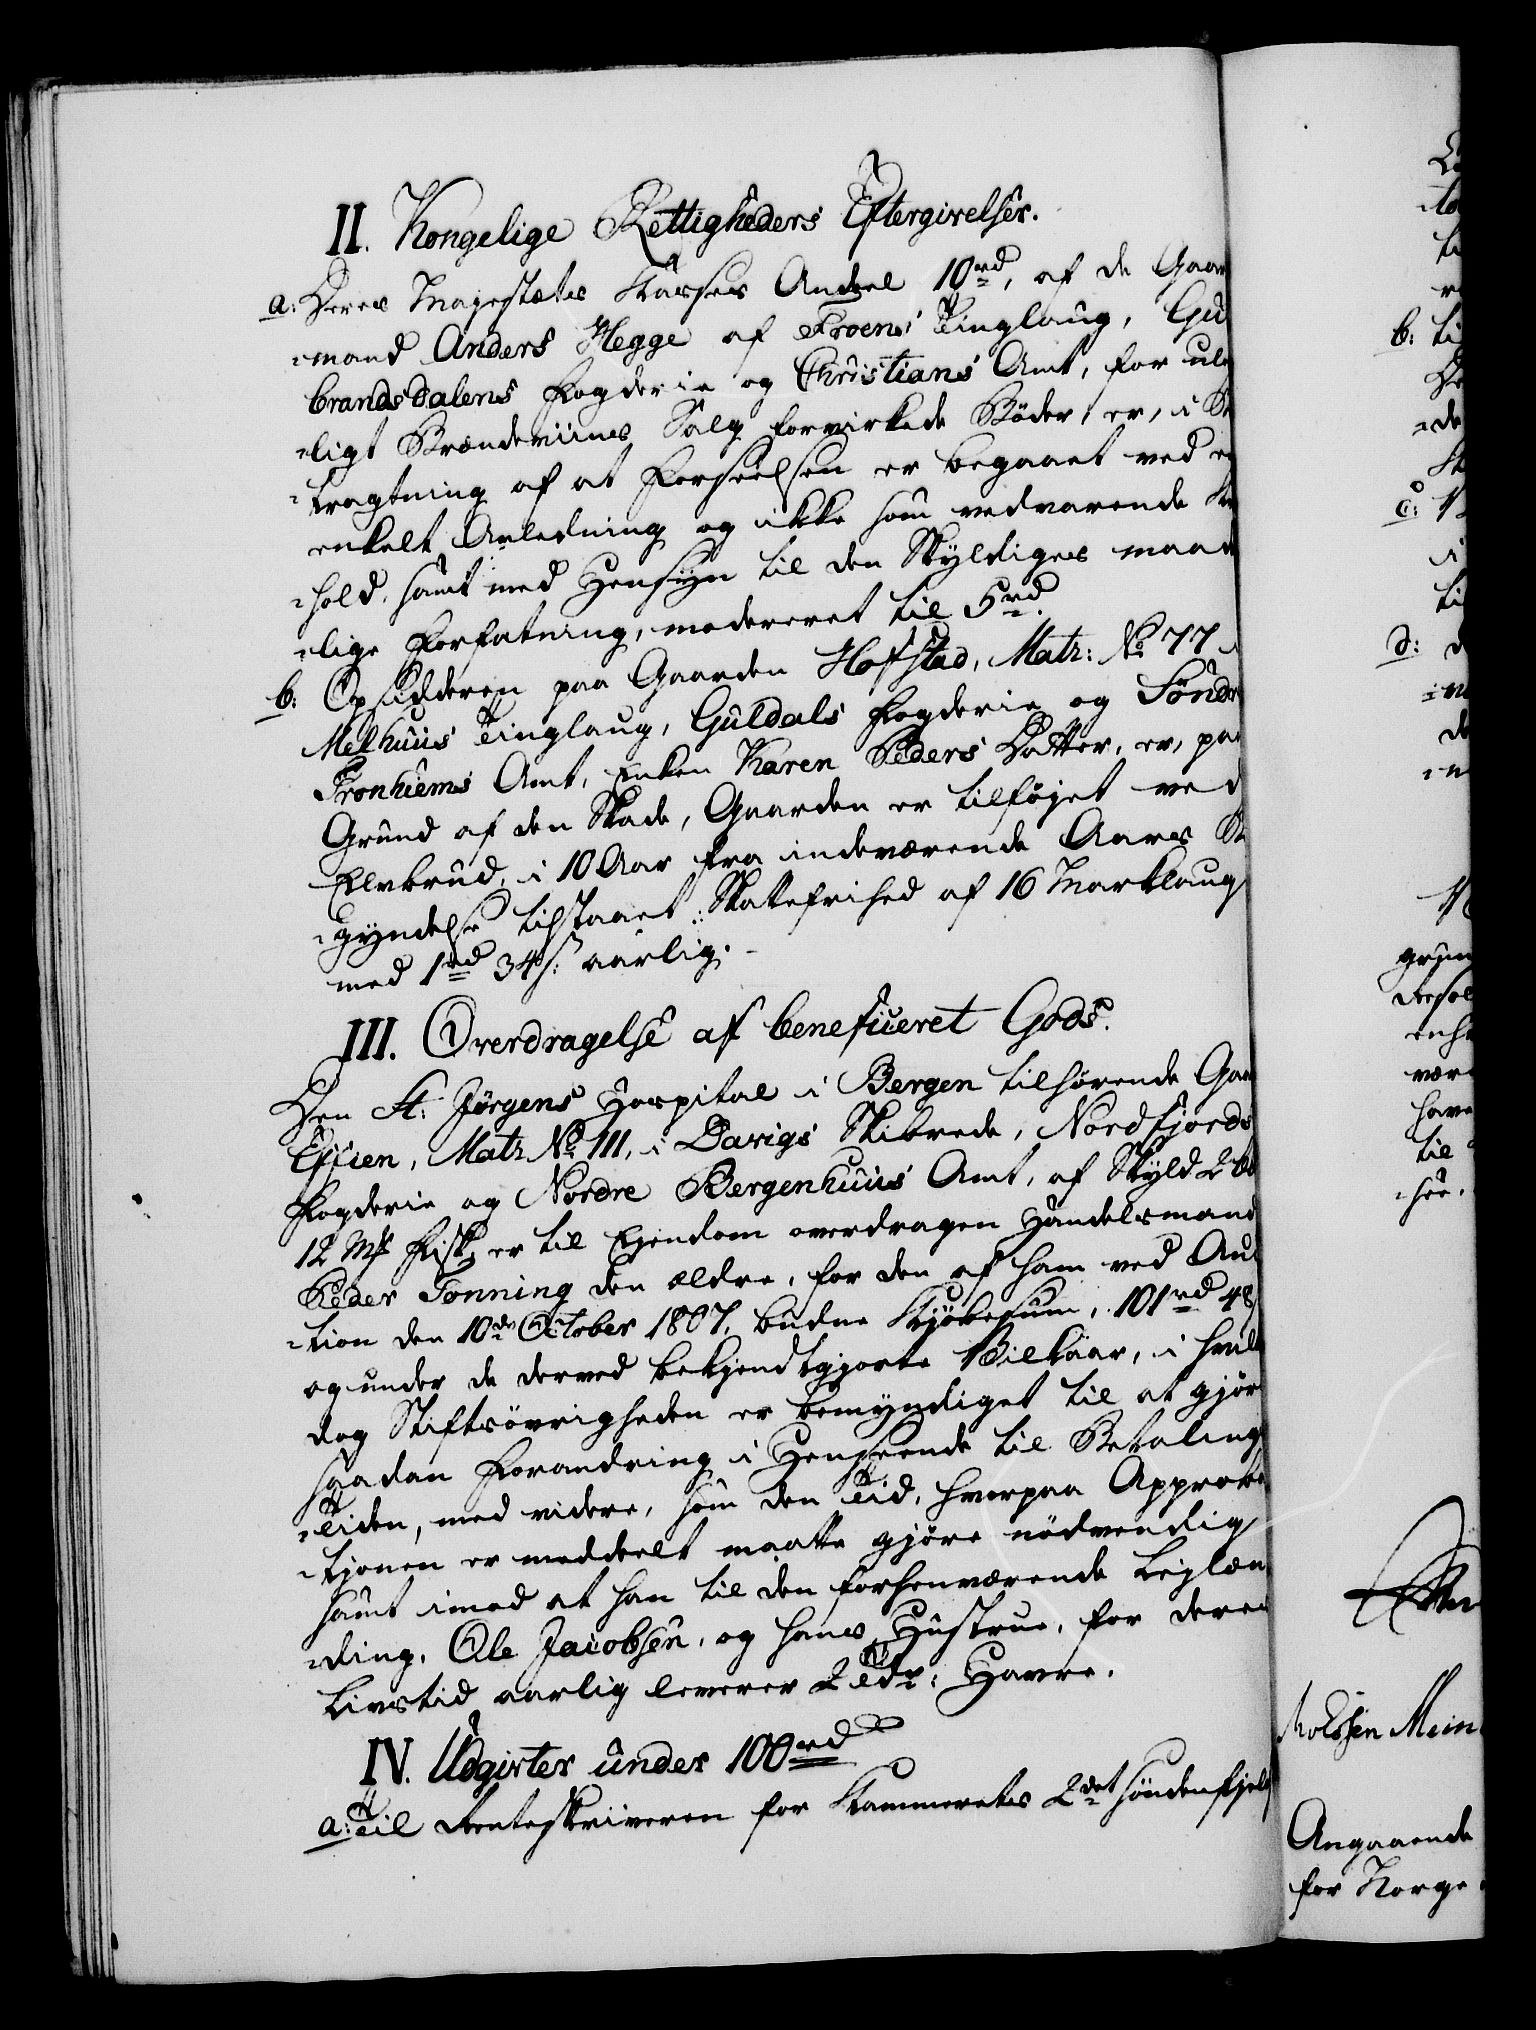 II. Kongelige Rettigheders Eftergivelser.
a: Deres Majestætes Kasses Andeel 10rd, af de Gaar
-mand Anders Hegge af Froens Tinglaug, Gu
brandsdalens Fogderie og Christians Amt, for ulo
-ligt Brændeviines Salg forvirkede Bøder, er, i Be
-tragtning af at Forseelsen er begaaet ved en
enkelt Anledning og ikke som vedvarende For
-hold, samt med Hensyn til den Skyldiges maade
-lige Forfatning, modereret til 5rd.
b: Opsidderen paa Gaarden Hofstad, Matr: No 77 i
Melhuus Tinglaug, Guldals Fogderie og Söndre
Tronhiems Amt, Enken Karen Peders Datter, er, paa
Grund af den Skade, Gaarden er tilføjet ved
Elvbrud, i 10 Aar fra indeværende Aars Be
-gyndelse tilstaaet Skattefrihed af 16 Marklaug
med 1rd 34s: aarlig. -
III. Overdragelse af beneficeret Gods.
Den St: Jörgens Hospital i Bergen tilhørende Gaar
Effien, Matr No 111, i Davigs Skibrede, Nordfjords
Fogderie og Nordre Bergenhuus Amt, af Skyld 2
12 Mk Fisk, er til Ejendom overdragen Handelsmand
Peder Tonning den ældre, for den af ham ved Auc
-tion den 10de October 1807, budne Kjøbesum, 101rd 48s
og under de derved bekjendtgjorte Vilkaar, i hvilke
dog Stiftsövrigheden er bemyndiget til at gjøre
saadan Forandring i Henseende til Betalings
-Tiden, med videre, som den Tid, hvorpaa Approba
-tjonen er meddeelt maatte gjøre nödvendig
samt imod at han til den forhenværende Lejlæn
-ding, Ole Jacobsen, og hans Hustrue, for deres
Livstid aarlig leverer 2 Tdr: Havre.
IV. Udgivter under 100rd
a: Til Renteskriveren for Kammerets 2det søndenfjels